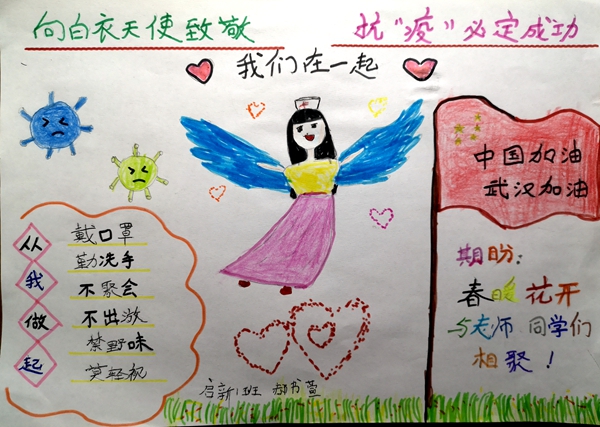 向白衣天使致敬
抗"疫"必定成功
我们在一起
中国加油
武汉加油
从我做起
戴口罩
勤洗手
不聚会
不出游
禁野味
莫轻视
期盼:
春暖花开
与老师同学们
相聚!
启新1班 郝书萱